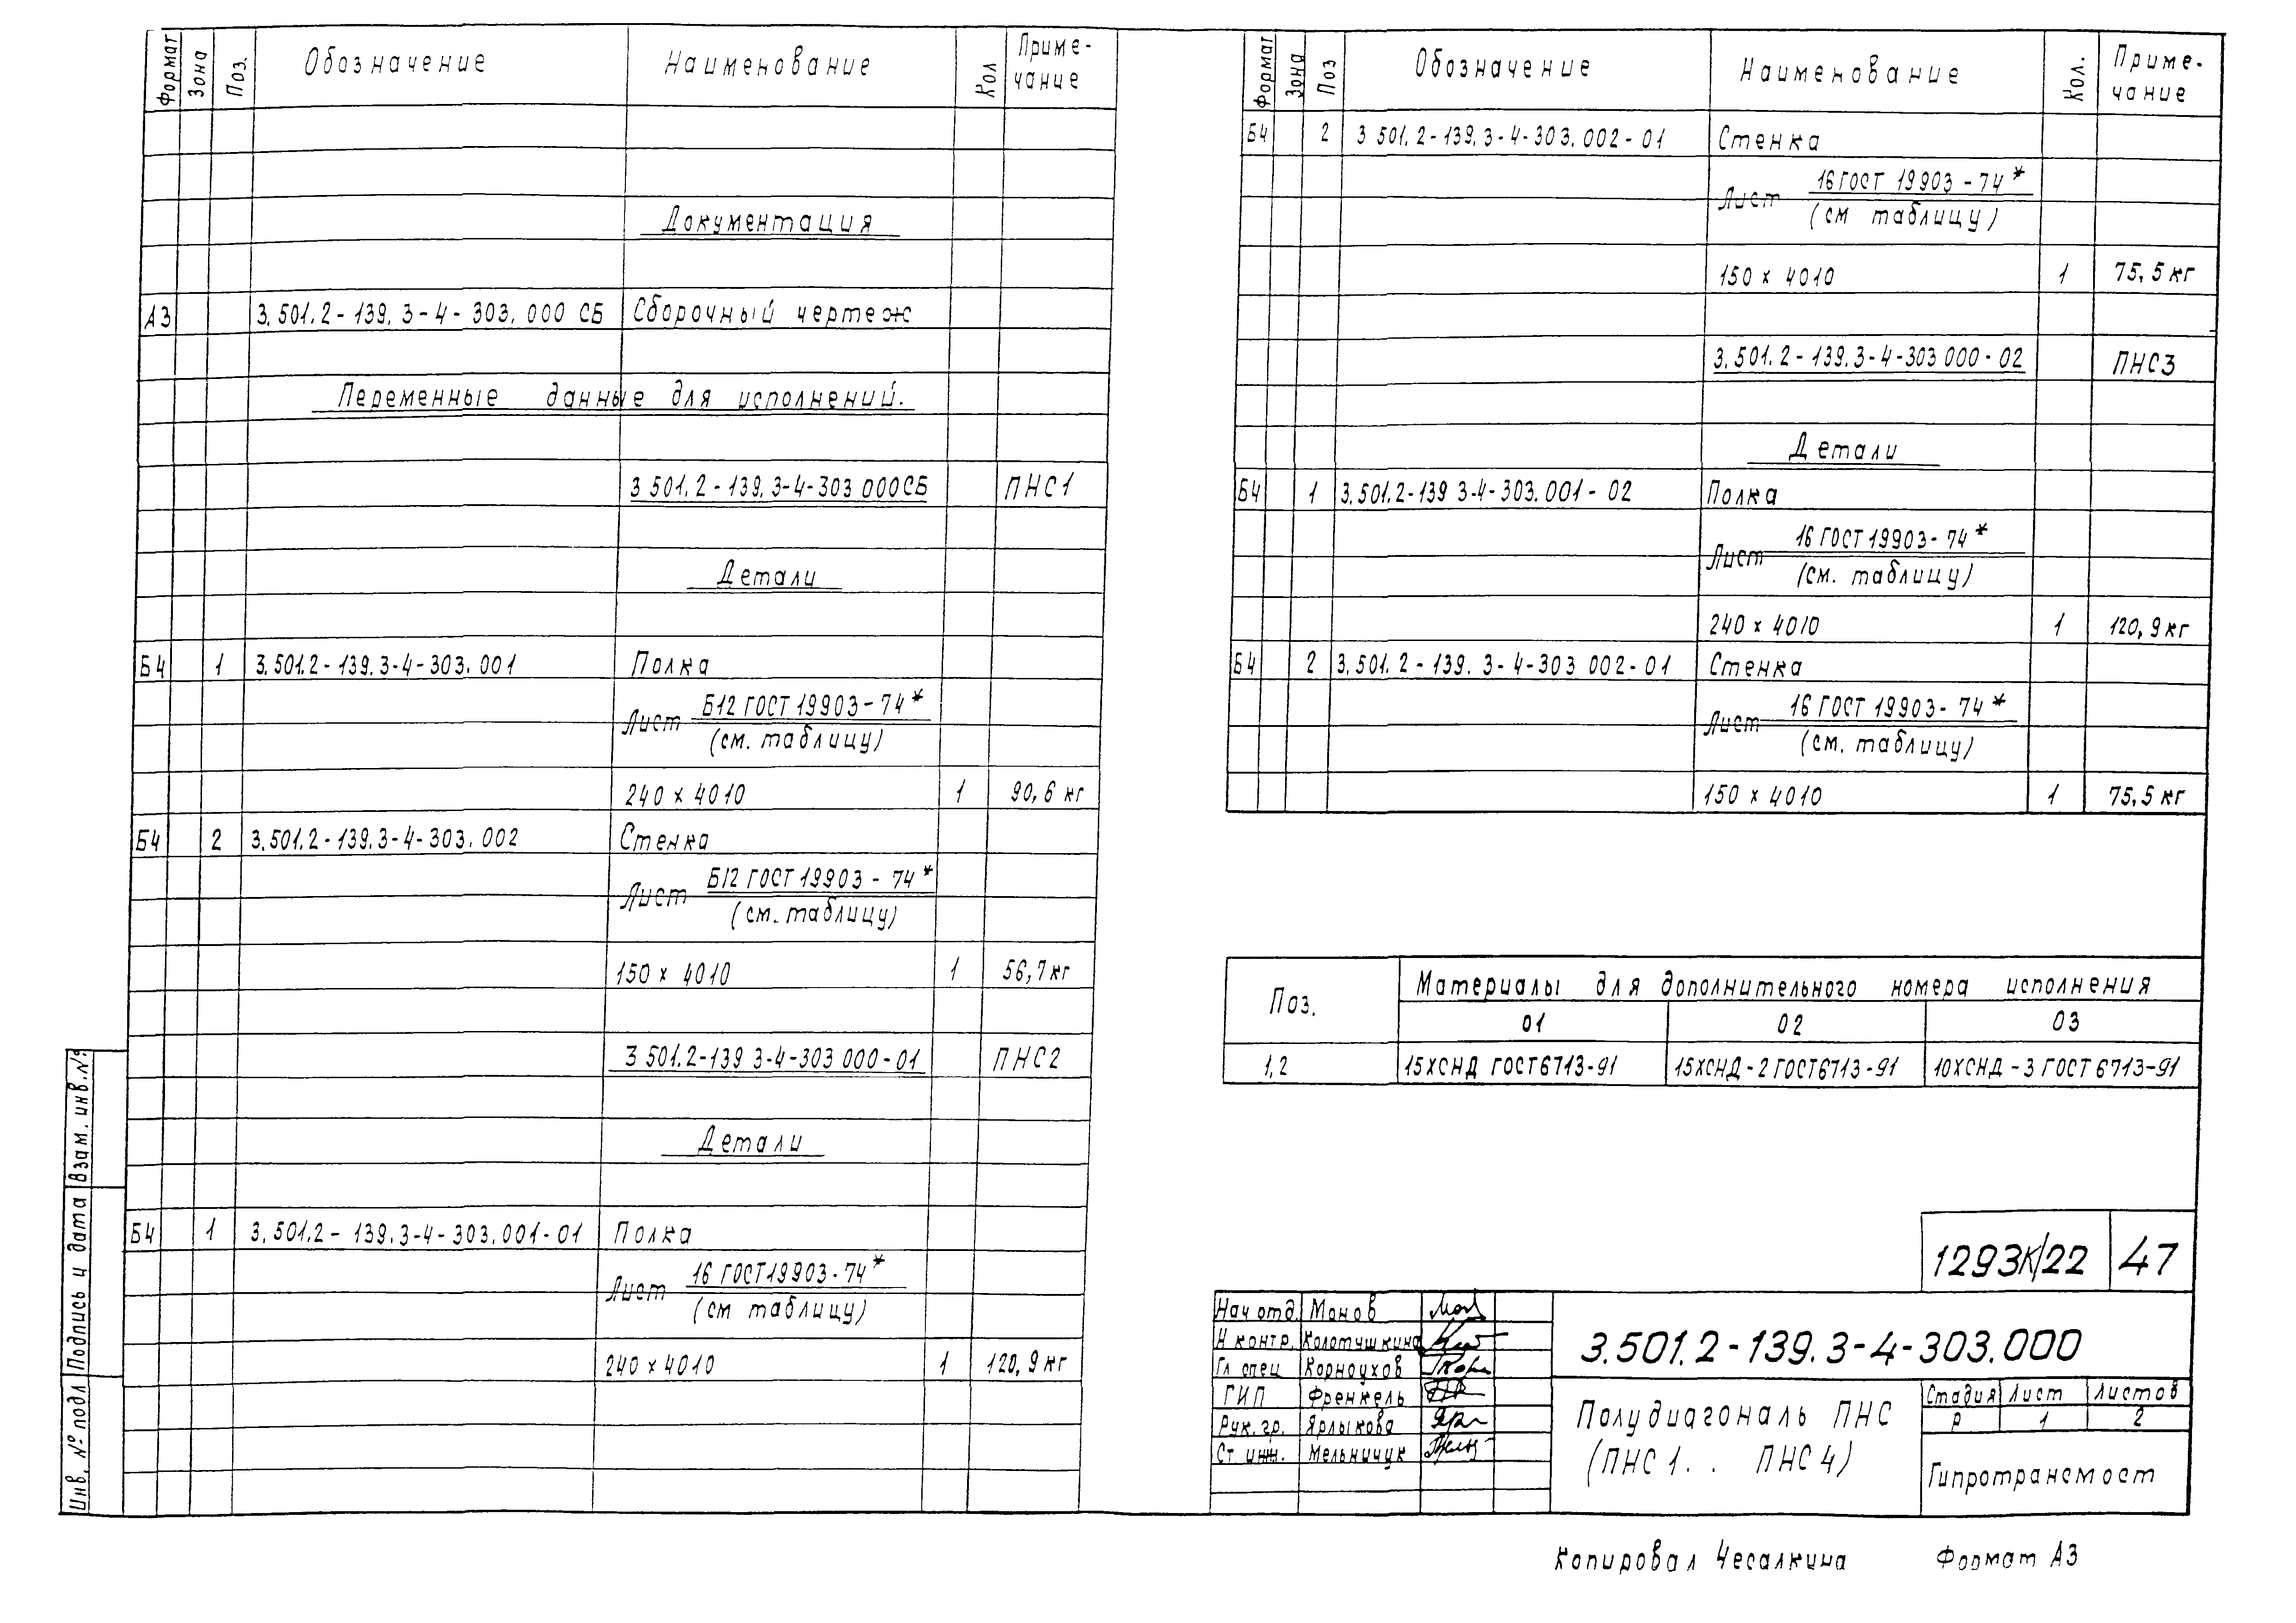 Формат Зона Поз. Обозначение Наименование Кол Приме-
чание
Документация
А3 3.501.2-139.3-4-303.000 СБ Сборочный чертеж
Переменные данные для исполнений.
3 501.2-139.3-4-303 000СБ ПНС1
Детали
Б4 1 3.501.2-139.3-4-303.001 Полка
Лист Б12 ГОСТ 19903-74*
(см. таблицу)
240 х 4010 1 90,6 кг
Б4 2 3.501.2-139.3-4-303.002 Стенка
Лист Б12 ГОСТ 19903-74*
(см. таблицу)
150 х 4010 1 56,7 кг
3 501.2-139 3-4-303 000-01 ПНС2
Детали
Б4 1 3.501.2-139.3-4-303.001-01 Полка
Лист 16 ГОСТ 19903-74*
(см таблицу)
240 х 4010 1 120,9 кг
Инв. № подл Подпись и дата Взам. инв. №
Формат Зона Поз Обозначение Наименование Кол. Приме-
чание
Б4 2 3 501.2-139.3-4-303.002-01 Стенка
Лист 16 ГОСТ 19903-74*
(см таблицу)
150 х 4010 1 75,5 кг
3.501.2-139.3-4-303 000-02 ПНС3
Детали
Б4 1 3.501.2-139 3-4-303.001-02 Полка
Лист 16 ГОСТ 19903-74*
(см. таблицу)
240 х 4010 1 120,9 кг
Б4 2 3.501.2-139.3-4-303 002-01 Стенка
Лист 16 ГОСТ 19903-74*
(см. таблицу)
150 х 4010 1 75,5 кг
Поз. Материалы для дополнительного номера исполнения
01 02 03
1,2 15ХСНД ГОСТ6713-91 15ХСНД-2 ГОСТ6713-91 10ХСНД-3 ГОСТ 6713-91
1293К/22 47
Нач отд. Монов
Н контр. Колотушкина
Гл спец Корноухов
ГИП Френкель
Рук. гр. Ярлыкова
Ст инж. Мельничук
3.501.2-139.3-4-303.000
Полудиагональ ПНС
(ПНС1.. ПНС4)
Стадия Лист Листов
Р 1 2
Гипротрансмост
Копировал Чесалкина Формат А3